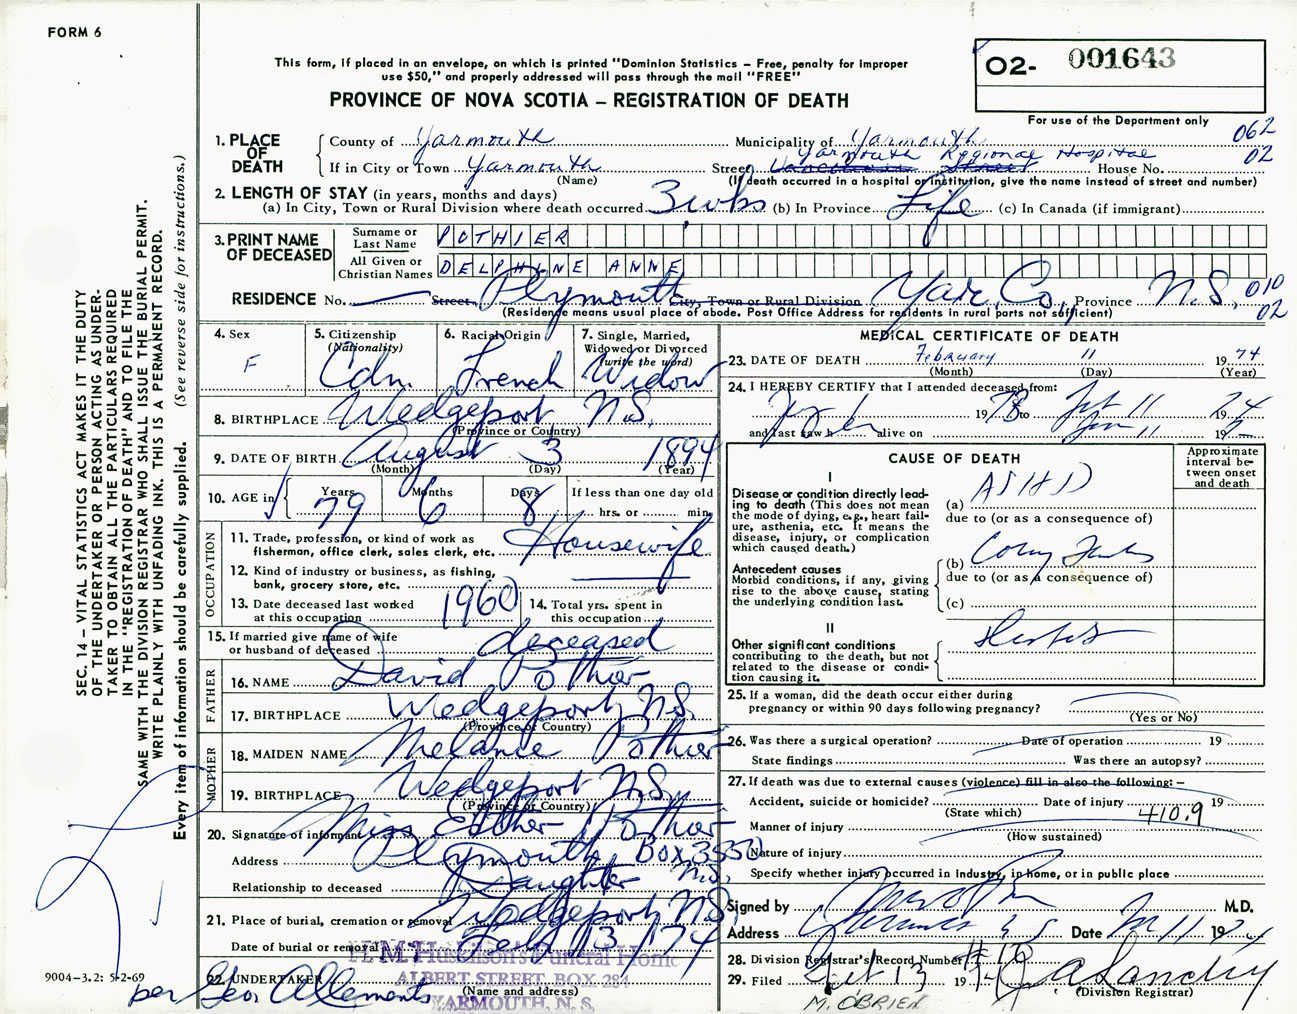 FORM 6
This form, if placed in an envelope, on which is printed "Dominion Statistics – Free, penalty for improper
use $50," and properly addressed will pass through the mail "FREE"
PROVINCE OF NOVA SCOTIA – REGISTRATION OF DEATH
02- 001643
For use of the Department only
062
02
1. PLACE OF DEATH
County of Yarmouth Municipality of Yarmouth
Yarmouth Regional Hospital
If in City or Town Yarmouth Street House No.
(Name) (If death occurred in a hospital or institution, give the name instead of street and number)
2. LENGTH OF STAY (in years, months and days)
(a) In City, Town or Rural Division where death occurred 3 wks (b) In Province Life (c) In Canada (if immigrant)
3. PRINT NAME OF DECEASED
Surname or Last Name POTHIER
All Given or Christian Names DELPHINE ANNE
RESIDENCE No. Street, Plymouth City, Town or Rural Division Yar. Co. Province N.S. 010
02
(Residence means usual place of abode. Post Office Address for residents in rural parts not sufficient)
4. Sex
F
5. Citizenship
(Nationality)
Cdn.
6. Racial Origin
French
7. Single, Married,
Widowed or Divorced
(write the word)
Widow
8. BIRTHPLACE Wedgeport N.S.
(Province or Country)
9. DATE OF BIRTH August 3 1894
(Month) (Day) (Year)
10. AGE in
Years Months Days If less than one day old
79 6 8 hrs. or min.
OCCUPATION
11. Trade, profession, or kind of work as
fisherman, office clerk, sales clerk, etc. Housewife
12. Kind of industry or business, as fishing,
bank, grocery store, etc.
13. Date deceased last worked
at this occupation 1960
14. Total yrs. spent in
this occupation
15. If married give name of wife
or husband of deceased deceased
FATHER
16. NAME David Pothier
17. BIRTHPLACE Wedgeport N.S.
(Province or Country)
MOTHER
18. MAIDEN NAME Melanie Pothier
19. BIRTHPLACE Wedgeport N.S.
(Province or Country)
20. Signature of informant Miss Esther Pothier
Address Plymouth Box 3550 N.S.
Relationship to deceased Daughter
21. Place of burial, cremation or removal Wedgeport, N.S.
Date of burial or removal Feb 13 174
22. UNDERTAKER
(Name and address)
Funeral Home
ALBERT STREET, BOX 284
YARMOUTH, N. S.
per Geo.
MEDICAL CERTIFICATE OF DEATH
23. DATE OF DEATH February 11 1974
(Month) (Day) (Year)
24. I HEREBY CERTIFY that I attended deceased from:
19 to 11
and last saw h alive on 11 19
CAUSE OF DEATH
Approximate interval between onset and death
I
Disease or condition directly leading
to death (This does not mean
the mode of dying, e.g., heart failure,
asthenia, etc. It means the
disease, injury, or complication
which caused death.)
(a) ASHD
due to (or as a consequence of)
Antecedent causes
Morbid conditions, if any, giving
rise to the above cause, stating
the underlying condition last.
(b)
due to (or as a consequence of)
(c)
II
Other significant conditions
contributing to the death, but not
related to the disease or condition
causing it.
25. If a woman, did the death occur either during
pregnancy or within 90 days following pregnancy?
(Yes or No)
26. Was there a surgical operation? Date of operation 19
State findings Was there an autopsy?
27. If death was due to external causes (violence) fill in also the following: –
Accident, suicide or homicide? Date of injury 19
(State which) 410.9
Manner of injury
(How sustained)
Nature of injury
Specify whether injury occurred in industry, in home, or in public place
Signed by M.D.
Address Date 11 19
28. Division Registrar's Record Number #18
29. Filed 13 19
(Division Registrar)
M. O'BRIEN
SEC. 14 – VITAL STATISTICS ACT MAKES IT THE DUTY
OF THE UNDERTAKER OR PERSON ACTING AS UNDER-
TAKER TO OBTAIN ALL THE PARTICULARS REQUIRED
IN THE "REGISTRATION OF DEATH" AND TO FILE THE
SAME WITH THE DIVISION REGISTRAR WHO SHALL ISSUE THE BURIAL PERMIT.
WRITE PLAINLY WITH UNFADING INK. THIS IS A PERMANENT RECORD.
Every item of information should be carefully supplied. (See reverse side for instructions.)
9004-3.2: 5-2-69